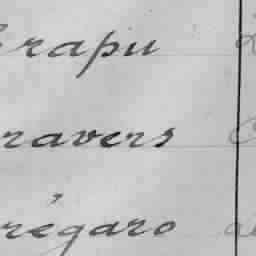 rapu
ravers
régaro